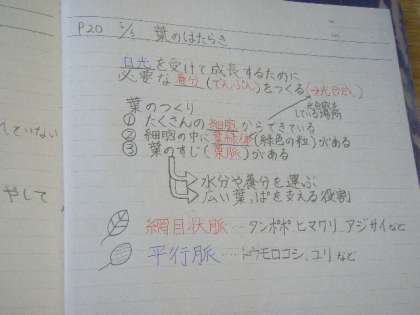 P20 5/5 葉のはたらき
日光を受けて成長するために
必要な養分(でんぷん)をつくる(→光合成)
葉のつくり
①たくさんの細胞からできている
②細胞の中に葉緑体(緑色の粒)がある
③葉のすじ(葉脈)がある
水分や養分を運ぶ
広い葉っぱを支える役割
網目状脈…タンポポ、ヒマワリ、アジサイなど
平行脈……トウモロコシ、ユリなど
ていない
やして